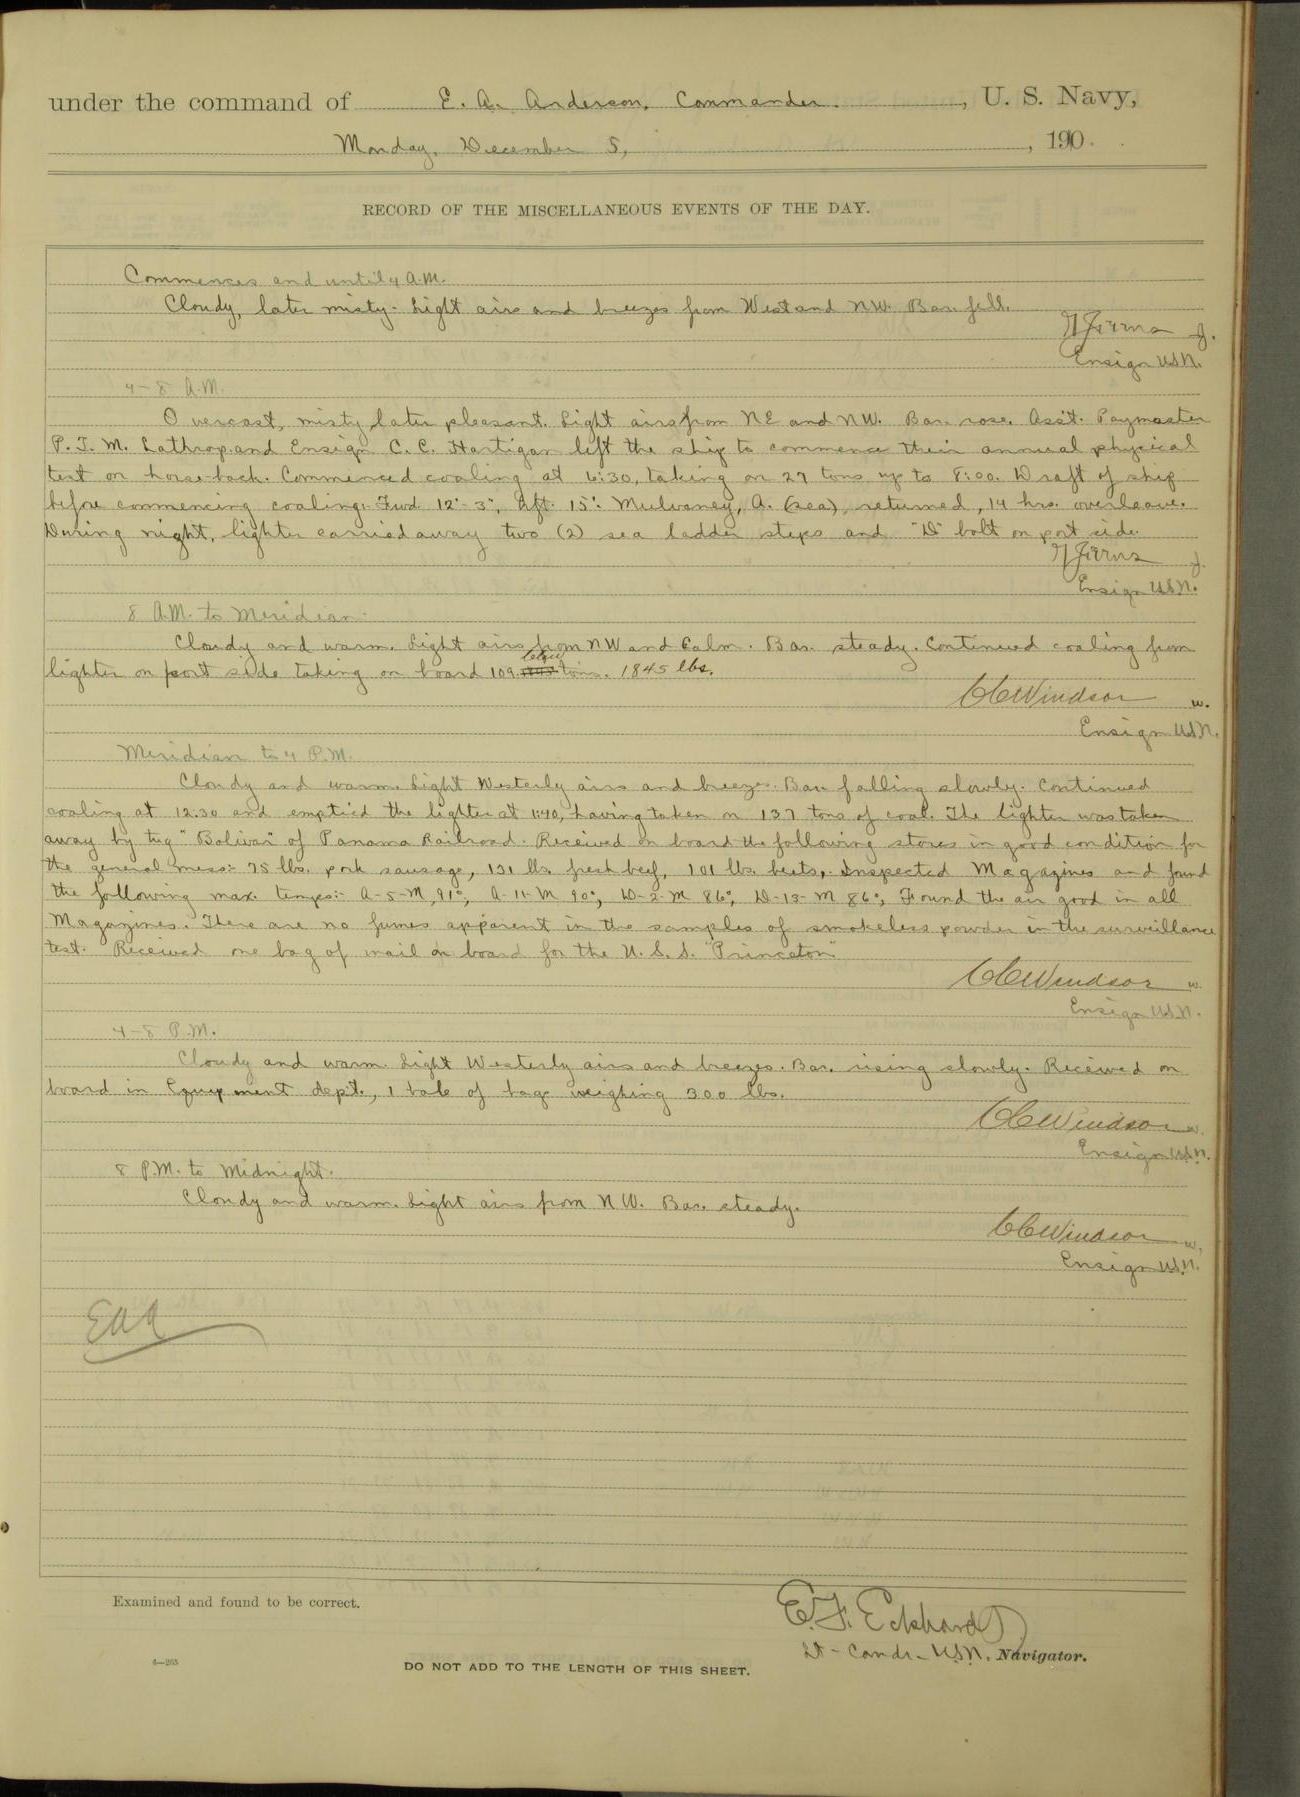 under the command of E. A. Anderson, Commander. , U. S. Navy,
Monday, December 5, , 1910.
RECORD OF THE MISCELLANEOUS EVENTS OF THE DAY.
Commences and until 4 A.M.
Cloudy, later misty. Light airs and breezes from West and NW. Bar. fell.
J.
Ensign U.S.N.
4-8 A.M.
Overcast, misty, later pleasant. Light airs from NE and NW. Bar. rose. Ass't. Paymaster
P. T. M. Lathrop and Ensign C. C. Hartigan left the ship to commence their annual physical
test on horse-back. Commenced coaling at 6:30, taking on 27 tons up to 8:00. Draft of ship
before commencing coaling:- Fwd. 12'-3", Aft. 15'. Mulvaney, A. (sea), returned, 14 hrs. overleave.
During night, lighter carried away two (2) sea ladder steps and "D" bolt on port side.
J.
Ensign U.S.N.
8 A.M. to Meridian.
Cloudy and warm. Light airs from NW and Calm. Bar. steady. Continued coaling from
lighter on port side taking on board 109 tons. 1845 lbs.
CC Windsor w.
Ensign U.S.N.
Meridian to 4 P.M.
Cloudy and warm. Light Westerly airs and breezes. Bar. falling slowly. Continued
coaling at 12:30 and emptied the lighter at 1:40, having taken on 137 tons of coal. The lighter was taken
away by tug "Bolivar" of Panama Railroad. Received on board the following stores in good condition for
the general mess:- 75 lbs. pork sausage, 131 lbs. fresh beef, 101 lbs. beets. Inspected Magazines and found
the following max. temps:- A-5-M, 91°, A-11-M 90°, D-2-M 86°, D-13-M 86°, Found the air good in all
Magazines. There are no fumes apparent in the samples of smokeless powder in the surveillance
test. Received one bag of mail on board for the U.S.S. "Princeton"
CC Windsor w.
Ensign U.S.N.
4-8 P.M.
Cloudy and warm. Light Westerly airs and breezes. Bar. rising slowly. Received on
board in Equipment dep't., 1 bale of bags weighing 300 lbs.
CC Windsor w.
Ensign U.S.N.
8 P.M. to Midnight.
Cloudy and warm. Light airs from NW. Bar. steady.
CC Windsor w.
Ensign U.S.N.
EAA
Examined and found to be correct.
E. F. Eckhardt
Lt-Comdr- U.S.N. Navigator.
6—265
DO NOT ADD TO THE LENGTH OF THIS SHEET.